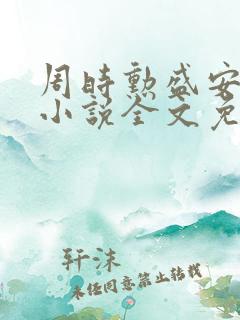 周时勲盛安
小说全文免
轩沫
未经同意禁止转载